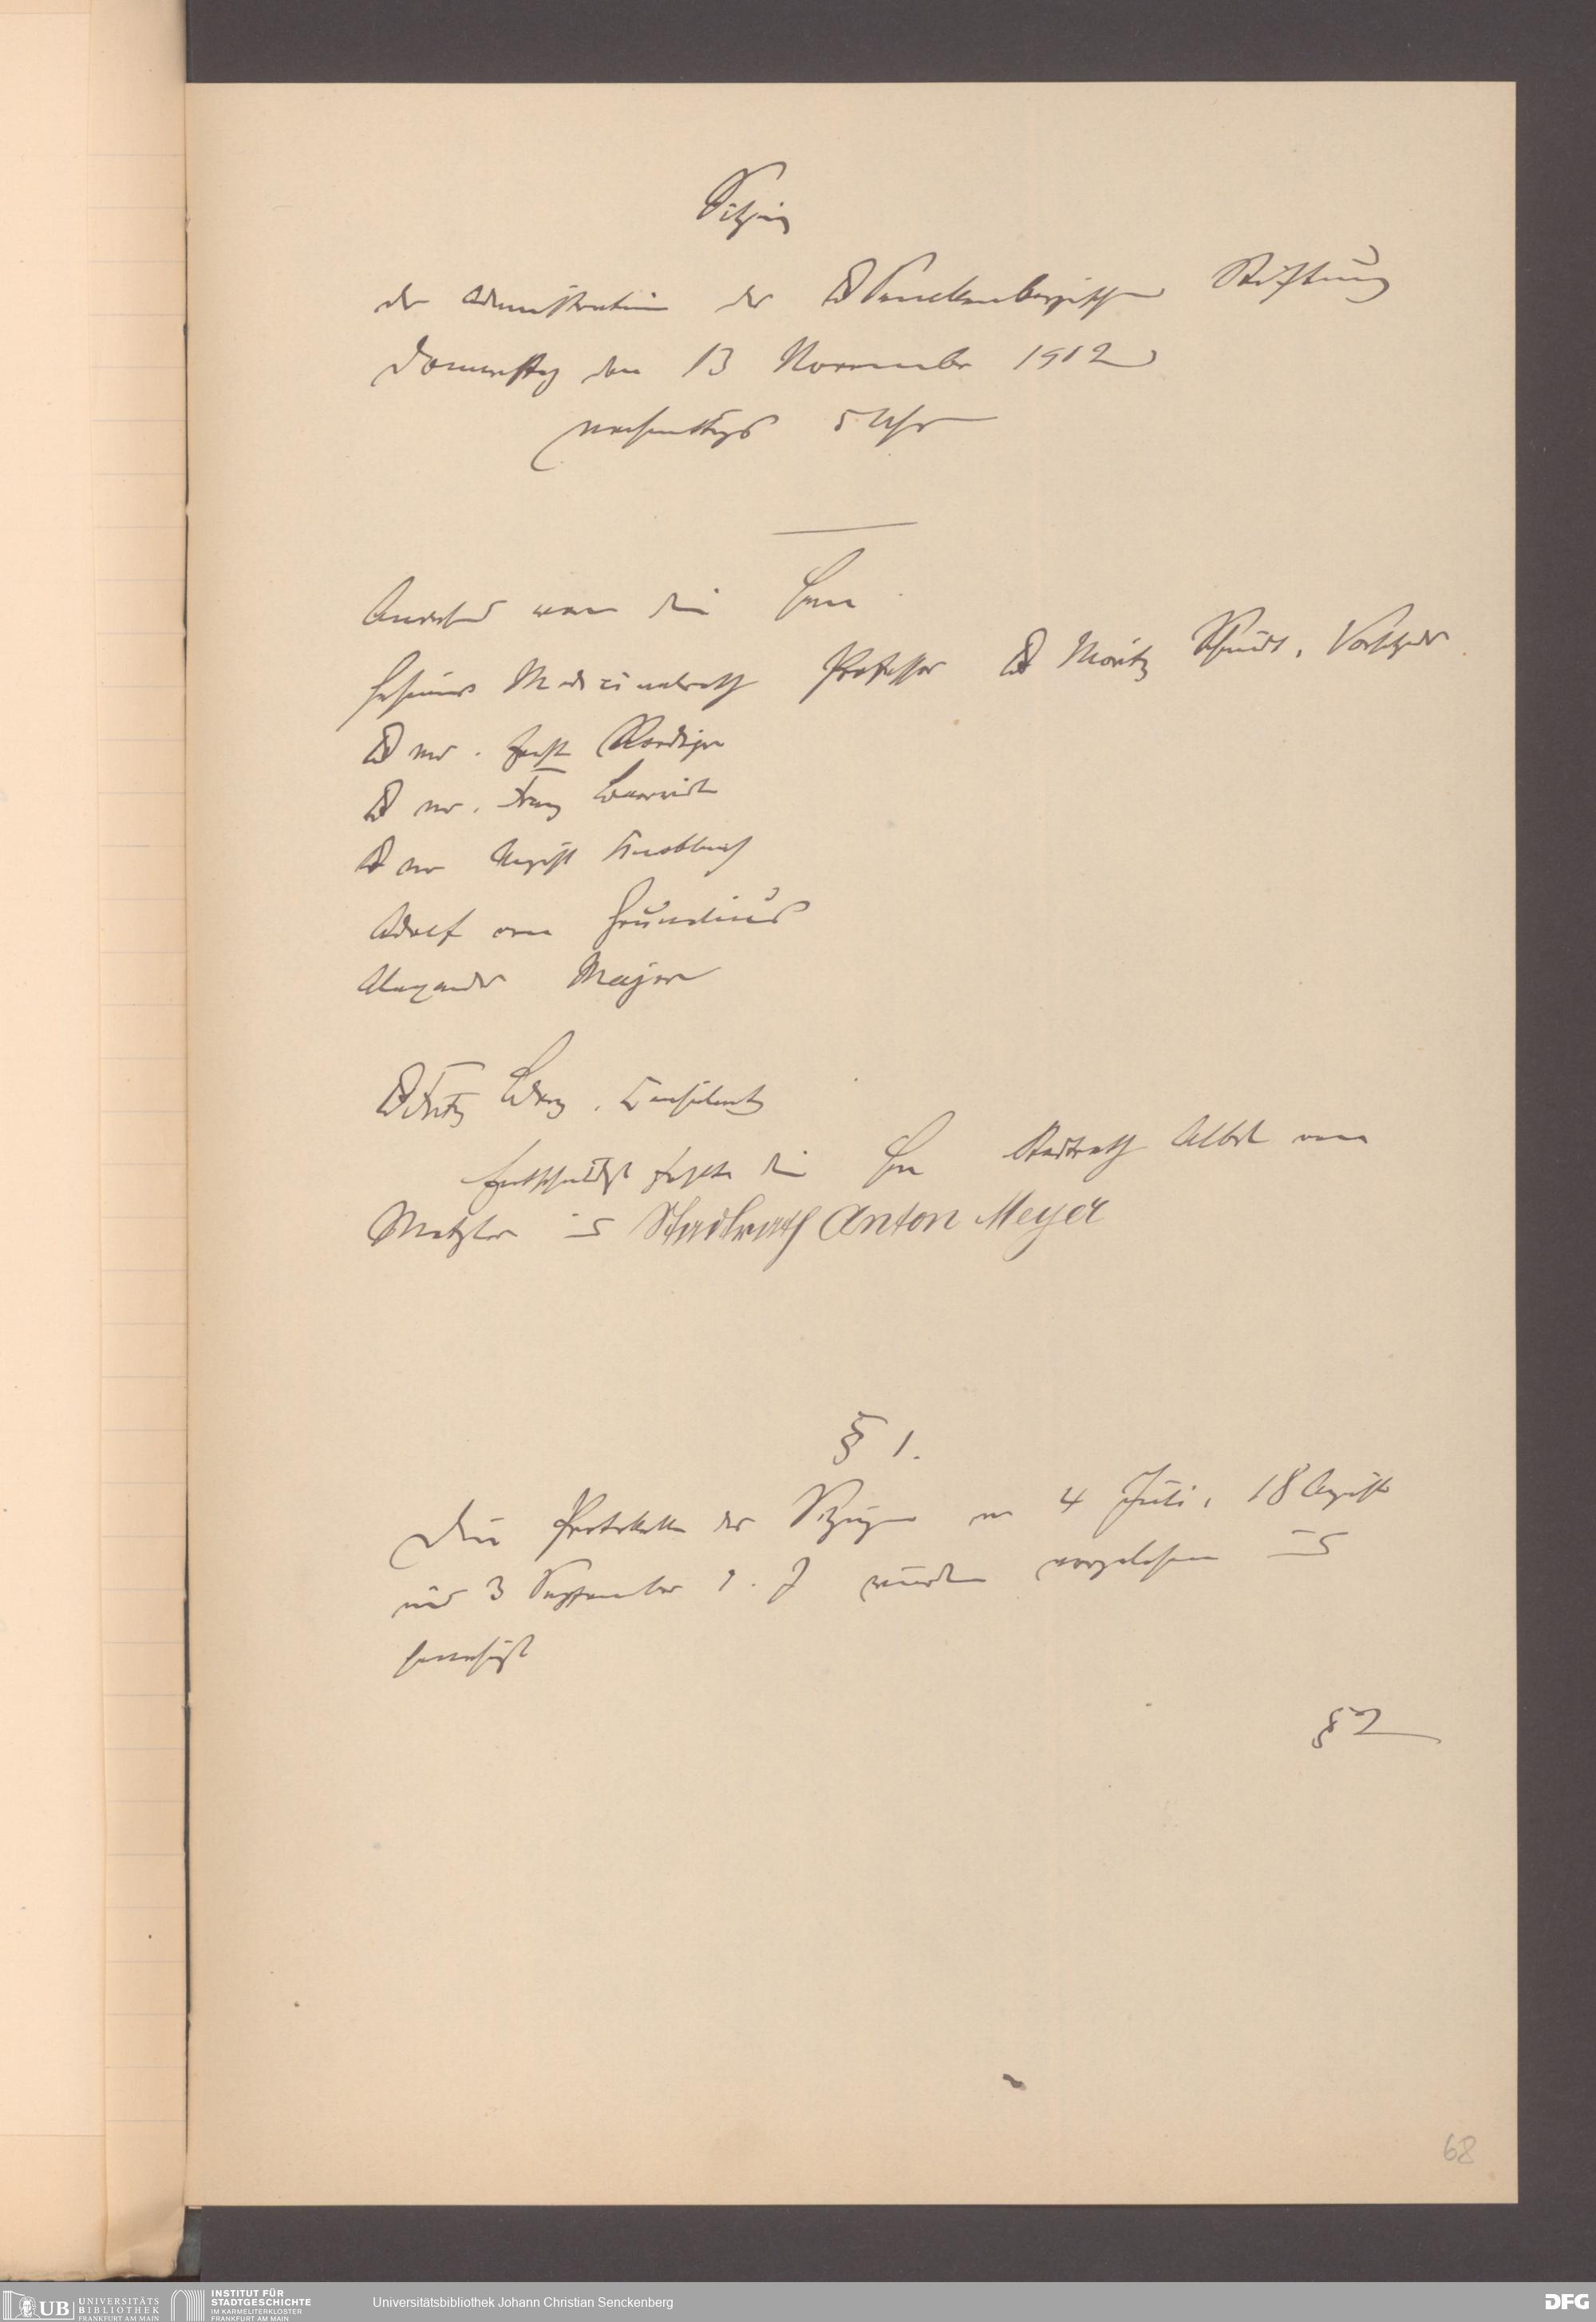 Sitzung
der Administration der Dr Senckenbergischen Stiftung
Donnerstag den 13 November 1902
nachmittags 5 Uhr
Anwesend waren die Herren
Geheimer Medizinalrath Professor Dr Moritz Schmidt, Vorsitzender
Dr med. Ernst Roediger
Dr med. Franz
Dr med August Knoblauch
Adolf von Grunelius
Alexander Majer
Dr Fritz Berg, Consulent
Entschuldigt fehlten die Herren Stadtrath Albert von
Metzler und Stadtrath Anton Meyer
§ 1.
Die Protokolle der Sitzungen vom 4 Juli, 18 August
und 3 September l. J wurden vorgelesen und
genehmigt
§ 2
68
UB UNIVERSITÄTS
BIBLIOTHEK
FRANKFURT AM MAIN
INSTITUT FÜR
STADTGESCHICHTE
IM KARMELITERKLOSTER
FRANKFURT AM MAIN
Universitätsbibliothek Johann Christian Senckenberg
DFG